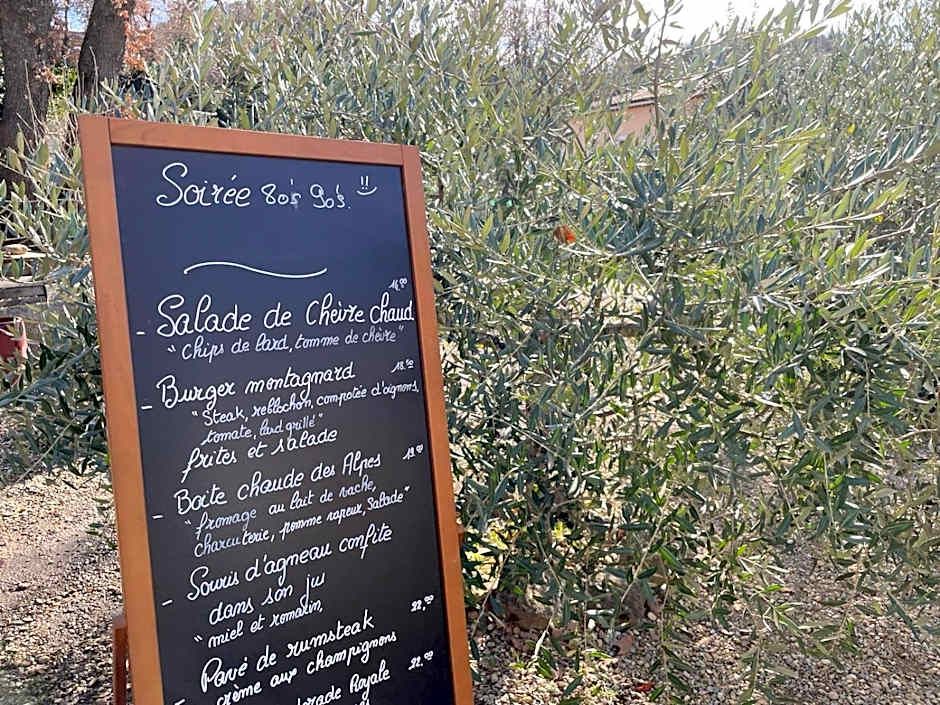 Soirée 80's 90's. !!
16.00
- Salade de Chèvre chaud
"Chips de lard, tomme de chèvre"
- Burger montagnard 18.50
"Steak, reblochon, compotée d'oignons,
tomate, lard grillé"
frites et salade
- Boite chaude des Alpes 19.00
"fromage au lait de vache,
charcuterie, pomme vapeur, Salade"
- Souris d'agneau confite
dans son jus
"miel et romarin, 22.00
Pavé de rumsteak
crème aux champignons
Royale 22.00